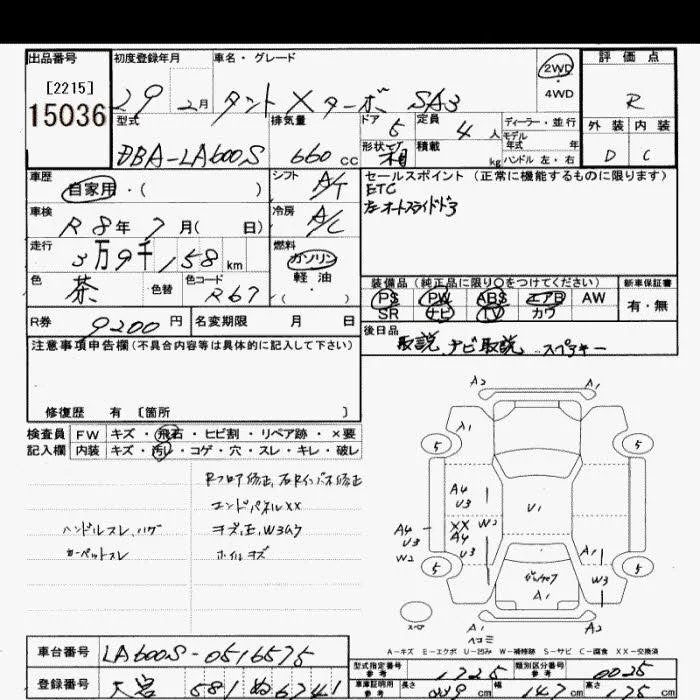 出品番号 初度登録年月 車名・グレード 2WD 評価点
[2215] 29 2月 タント X ターボ SA3 4WD R
15036
型式 排気量 ドア 5 定員 4人 ディーラー・並行 外装 内装
DBA-LA600S 660 cc 形状 箱 積載 kg モデル年式 年 D C
ハンドル 左・右
車歴 自家用・( ) シフト A/T セールスポイント(正常に機能するものに限ります)
ETC
車検 R8年 7月( 日) 冷房 A/C 左オートスライドドア
走行 3万9千158 km 燃料 ガソリン
軽油
( )
色 茶 色替 色コード R67
装備品(純正品に限り○をつけてください) 新車保証書
PS PW ABS エアB AW 有・無
SR ナビ TV カワ
R券 9200円 名変期限 月 日 後日品
取説 ナビ取説 スペアキー
注意事項申告欄(不具合内容等は具体的に記入して下さい)
修復歴 有 [箇所 ]
検査員 FW キズ・飛石・ヒビ割・リペア跡・×要
記入欄 内装 キズ・汚レ・コゲ・穴・スレ・キレ・破レ
Rフロア修正、右Rインパネ修正
エンドパネルXX
ハンドルスレ、ハゲ キズ、E、W3ムラ
カーペットスレ ホイルキズ
A2 A1
A1
5 5
A4 U3
U1
XX W2
A4 U3
A4 U3 W2
5 5
A1
W3
A1
A1 ヘコミ A2
A-キズ E-エクボ U-凹み W-補修跡 S-サビ C-腐食 XX-交換済
車台番号 LA600S-0516575 型式指定番号 参考 1725 類別区分番号 参考 0025
登録番号 大宮 581 ぬ6741 車庫証明用 参考 長さ 339 cm 幅 147 cm 高さ 175 cm